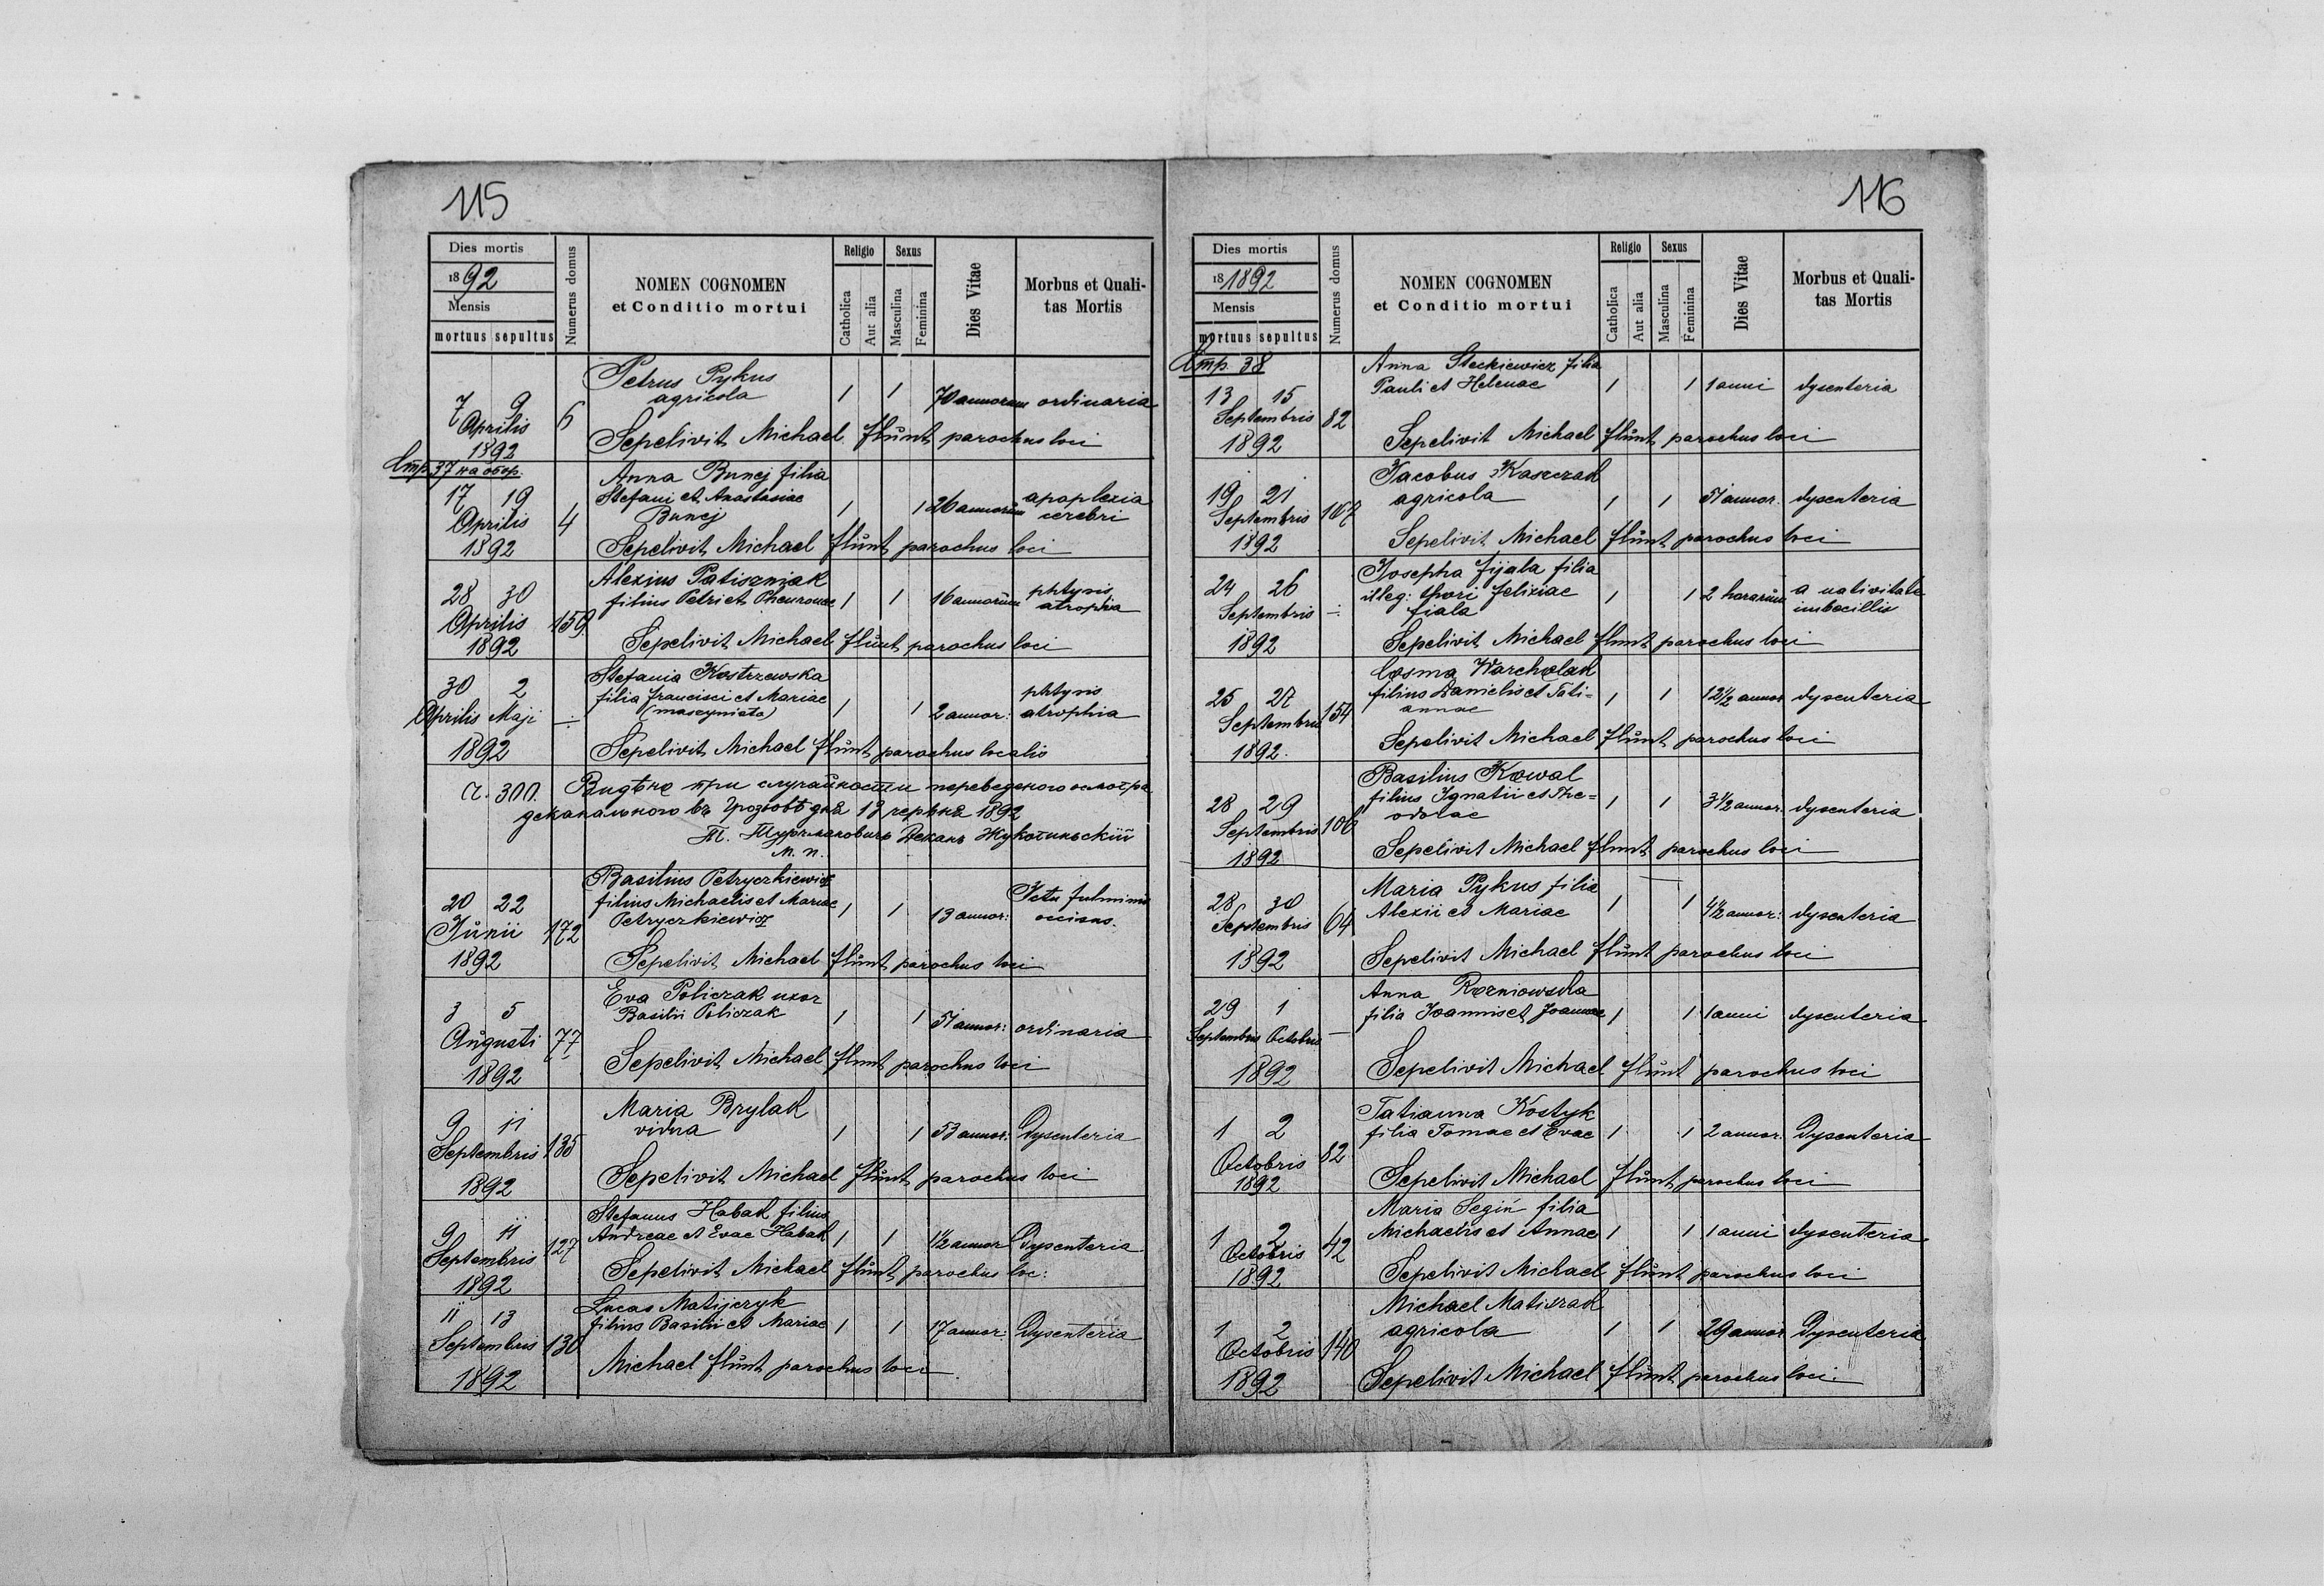 115
Dies mortis
1892
Mensis
mortuus sepultus
Numerus domus
NOMEN COGNOMEN
et Conditio mortui
Religio
Catholica
Aut alia
Sexus
Masculina
Feminina
Dies Vitae
Morbus et Quali-
tas Mortis
Petrus Pykus
agricola
7 9 6 1 1 70 annorum ordinaria
Aprilis
1892
Sepelivit Michael Flunt parochus loci
Стр. 37 на обор.
Anna Bunej filia
Stefani et Anastasiae
Bunej
17 19 4 1 1 26 annorum apoplexia
cerebri
Aprilis
1892
Sepelivit Michael Flunt parochus loci
Alexius Patiszniak
filius Petri et
28 30 159 1 1 16 annorum phtysis
atrophia
Aprilis
1892
Sepelivit Michael Flunt parochus loci
Stefania Kostrzewska
filia Francisci et Mariae
30 2 ÷ 1 1 2 annor: phtysis
atrophia
Aprilis Maji
1892
Sepelivit Michael Flunt parochus localis
Ч. 300. Видѣно при случайности переведеного осмотра
деканального въ дня 13 червня 1892
Деканъ
м. п.
Basilius Petryczkiewicz
filius Michaelis et Mariae
Petryczkiewicz
20 22 172 1 1 13 annor: Ictu fulminis
occisus.
Junii
1892
Sepelivit Michael Flunt parochus loci
Eva Policzak uxor
Basilii Policzak
3 5 77 1 1 51 annor: ordinaria
Augusti
1892
Sepelivit Michael Flunt parochus loci
Maria Brylak
vidua
9 11 135 1 1 53 annor: Dysenteria
Septembris
1892
Sepelivit Michael Flunt parochus loci
Stefanus Habak filius
Andreae et Evae Habak
9 11 127 1 1 1½ annor Dysenteria
Septembris
1892
Sepelivit Michael Flunt parochus loc:
Lucas Matijczyk
filius Basilii et Mariae
11 13 130 1 1 17 annor: Dysenteria
Septembris
1892
Michael Flunt parochus loci
116
Dies mortis
18 1892
Mensis
mortuus sepultus
Numerus domus
NOMEN COGNOMEN
et Conditio mortui
Religio
Catholica
Aut alia
Sexus
Masculina
Feminina
Dies Vitae
Morbus et Quali-
tas Mortis
Стр. 38
Anna Steckiewicz filia
Pauli et Helenae
13 15 82 1 1 1 anni dysenteria
Septembris
1892
Sepelivit Michael Flunt parochus loci
Jacobus Kaszczak
agricola
19 21 107 1 1 51 annor. dysenteria
Septembris
1892
Sepelivit Michael Flunt parochus loci
Josepha Fijala filia
illeg: thori Felixiae
fiala
24 26 ÷ 1 1 2 horarum a nativitate
imbecillis
Septembris
1892
Sepelivit Michael Flunt parochus loci
Cosma Warcholak
filius Danielis et Tati=
annae
25 27 154 1 1 12½ annor dysenteria
Septembris
1892.
Sepelivit Michael Flunt parochus loci
Basilius Kowal
filius Ignatii et The=
odorae
28 29 106 1 1 3½ annor. dysenteria
Septembris
1892
Sepelivit Michael Flunt parochus loci
Maria Pykus filia
Alexii et Mariae
28 30 64 1 1 4½ annor: dysenteria
Septembris
1892
Sepelivit Michael Flunt parochus loci
Anna Rozniowska
filia Joannis et Joannae
29 1 — 1 1 1 anni dysenteria
Septembris Octobris
1892
Sepelivit Michael Flunt parochus loci
Tatianna Kostyk
filia Tomae et Evae
1 2 82 1 1 2 annor. Dysenteria
Octobris
1892
Sepelivit Michael Flunt parochus loci
Maria Segin filia
Michaelis et Annae
1 2 42 1 1 1 anni dysenteria
Octobris
1892
Sepelivit Michael Flunt parochus loci
Michael Matiszak
agricola
1 2 140 1 1 29 annor Dysenteria
Octobris
1892
Sepelivit Michael Flunt parochus loci.